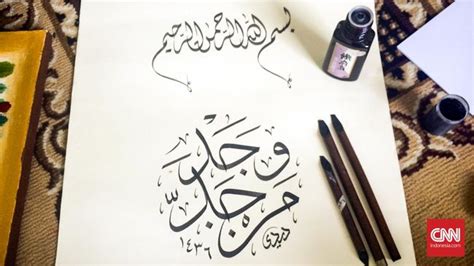 بسم الله الرحمن الرحيم
مَن جَدَّ وَجَدَ
١٤٣٦
CNN
Indonesia.com